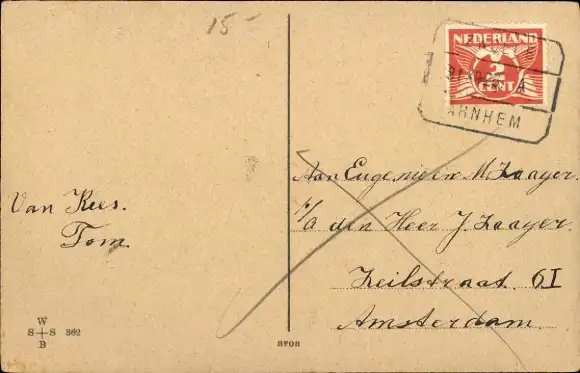 15-
NEDERLAND
2
CENT
ARNHEM
Aan Eugenie en M. Zaayer.
p/a den Heer J. Zaayer.
Zeilstraat 61
Amsterdam.
Van Kees.
Tom.
W
S S 362
B
BFOB